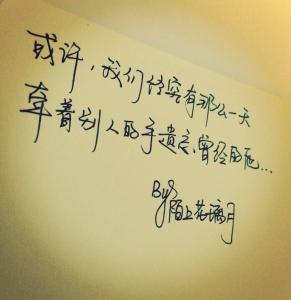 或许，我们终究有那么一天
牵着别人的手遗忘曾经的他...
By 陌上花璃月